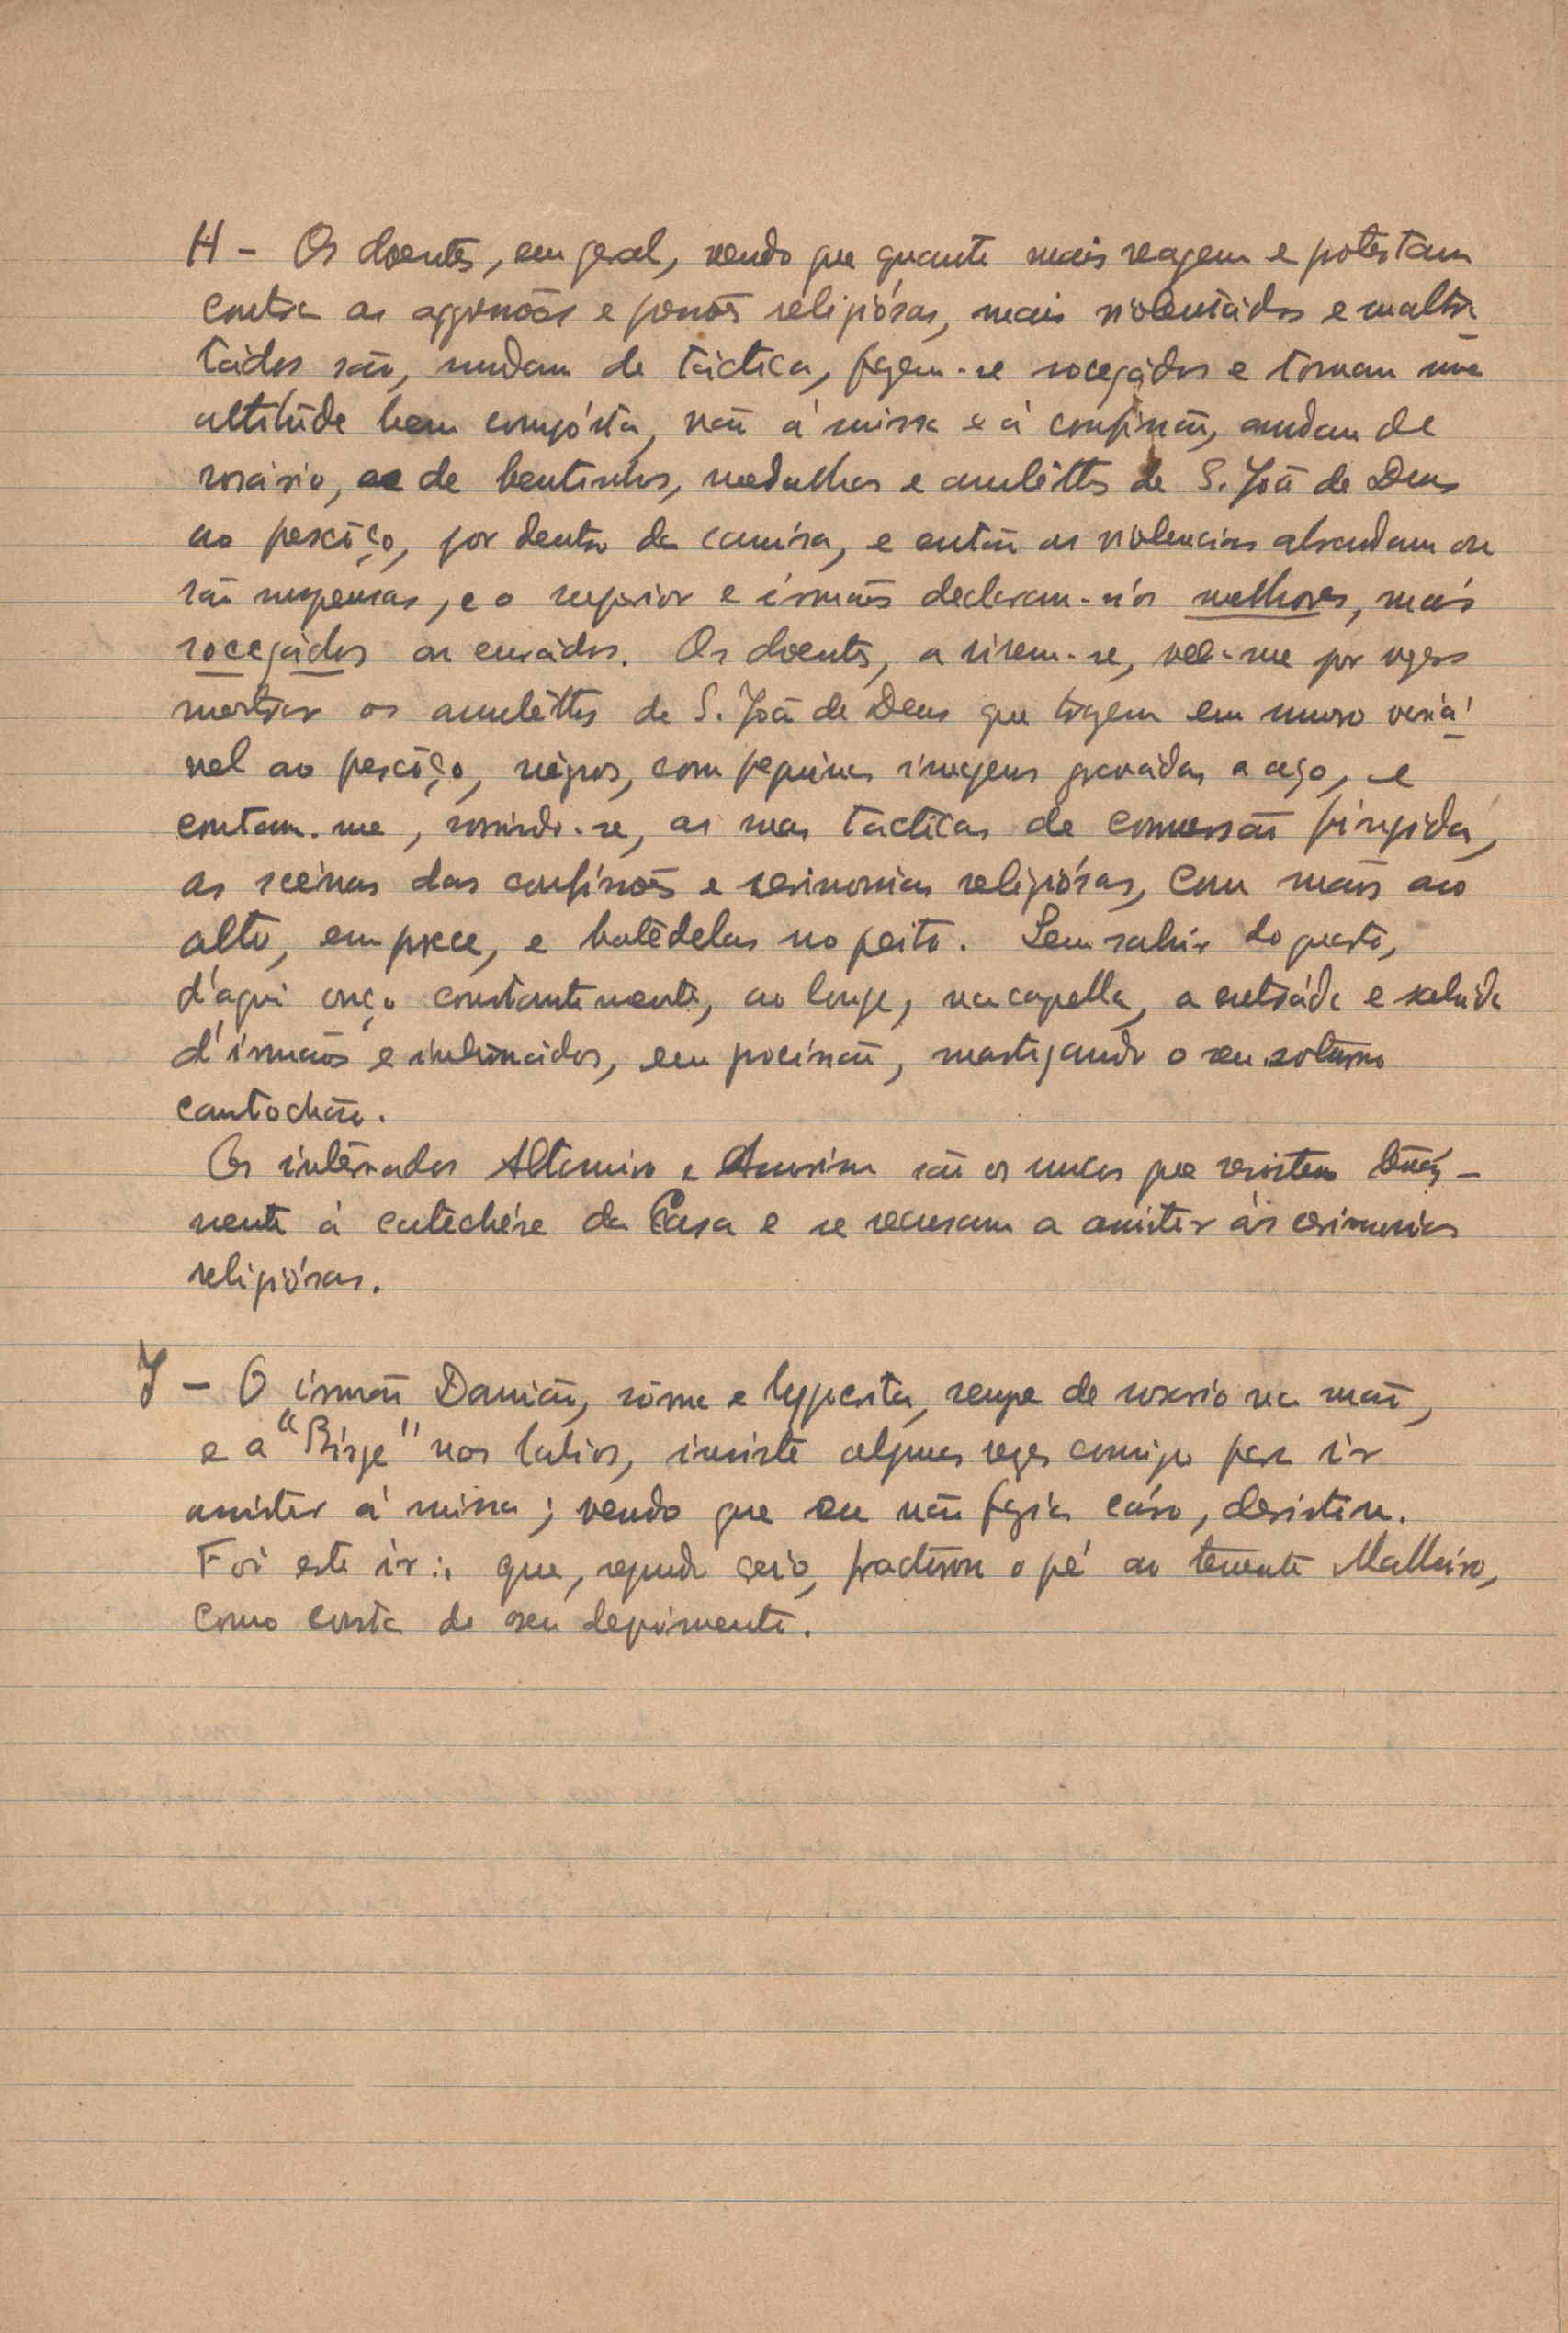 H - Os doentes, em geral, vendo que quanto mais reagem e protestam
contra as oppressões e pressões religiósas, mais violentádos e maltra
tádos são, mudam de táctica, fazem-se socegádos e tomam uma
attitúde bem compósta, vão á missa e á confissão, andam de
rosário, de bentinhos, medalhas e amulêttos de S. João de Deus
ao pescôço, por dentro da camisa, e então as violencias abrandam ou
são suspensas, e o superior e irmãos declaram-n'os melhores, mais
socegádos ou curádos. Os doentes, a rirem-se, vêem-me por vezes
mostrar os amulêttos de S. João de Deus que trazem em numero variá
vel ao pescôço, négros, com pequenas imagens gravadas a aço, e
contam-me, sorrindo-se, as suas tacticas de conversão fingida,
as scênas das confissões e cerimonias religiósas, com mãos ao
alto, em préce, e batêdelas no peito. Sem sahir do quarto,
d'aqui ouço constantemente, ao longe, na capella, a entráda e sahida
d'irmãos e internádos, em procissão, mastigando o seu soturno
cantochão.
Os internados Altamiro e Amorim são os unicos que resistem tenáz-
mente á catechése da Casa e se recusam a assistir ás cerimonias
religiósas.
J - O irmão Damião, sôrna e hypocrita, sempre de rosario na mão,
e a "Birge" nos labios, insiste algumas vezes comigo para ir
assistir á missa; vendo que eu não fazia cáso, desistiu.
Foi este ir∴ que, segundo creio, fracturou o pé ao tenente Malheiro,
como consta do seu depoimento.